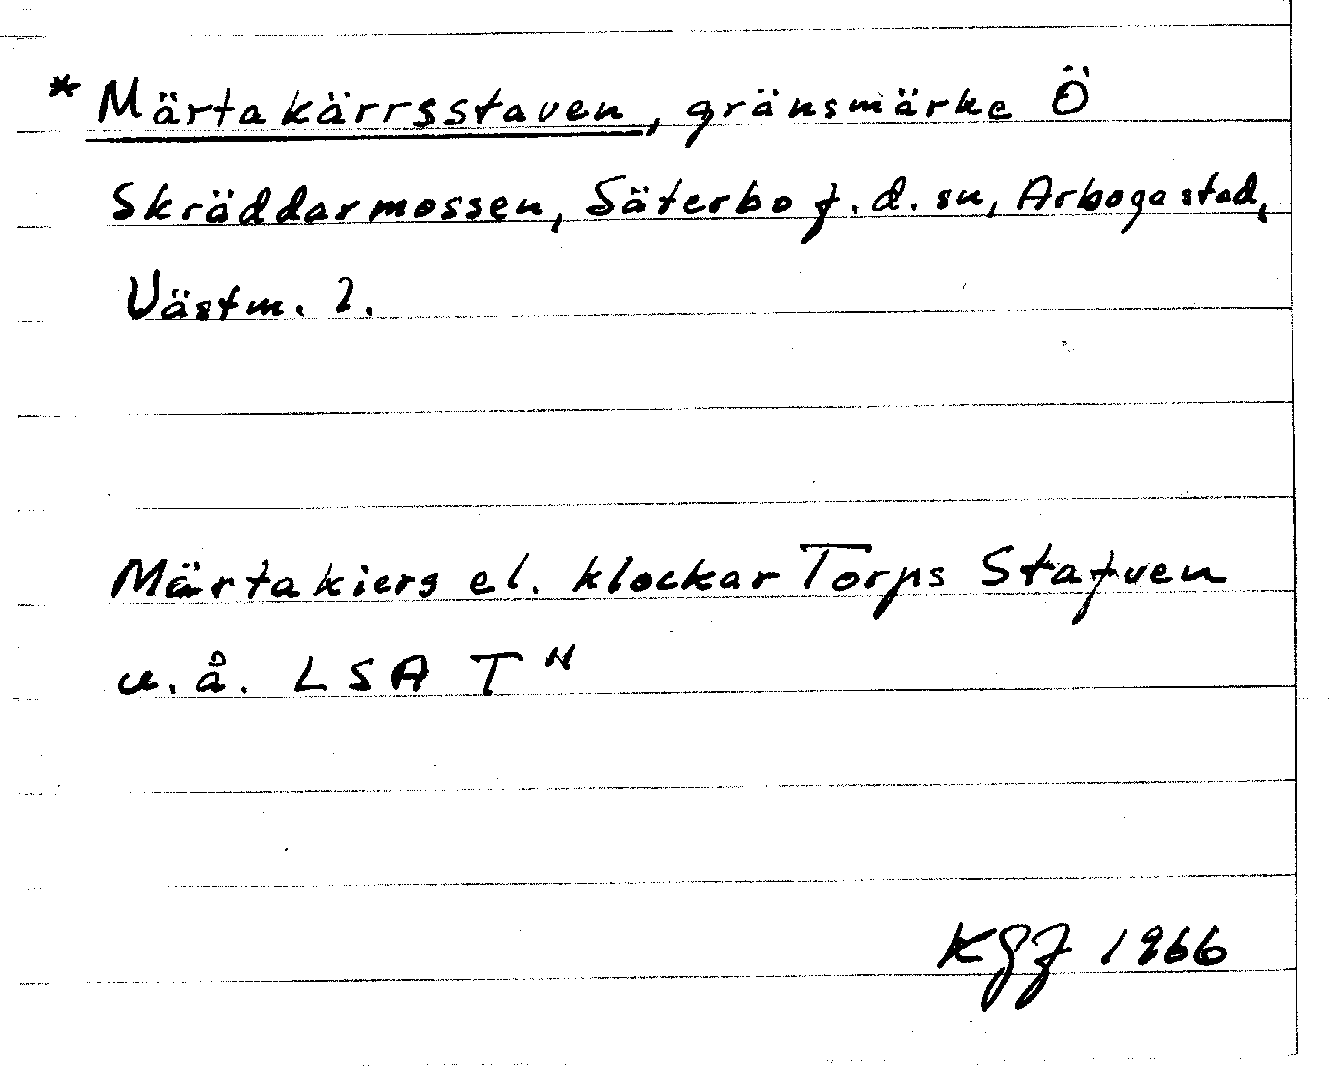 * Märtakärrsstaven, gränsmärke Ö
Skräddarmossen, Säterbo f.d. sn, Arboga stad,
Västm. l.
Märtakiers el. klockar Torps Stafven
u.å. LSA T N
KGJ 1966